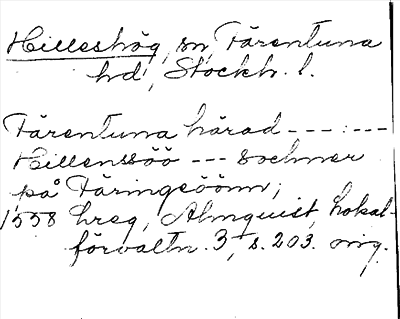 Hilleshög, sn, Färentuna
hd, Stockh. l.
Färentuna härad --- : ---
Hillenssöö --- sochner
på Färingeöönn;
1558 hreg, Almquist, Lokal-
förvaltn. 3, s. 203. orig.